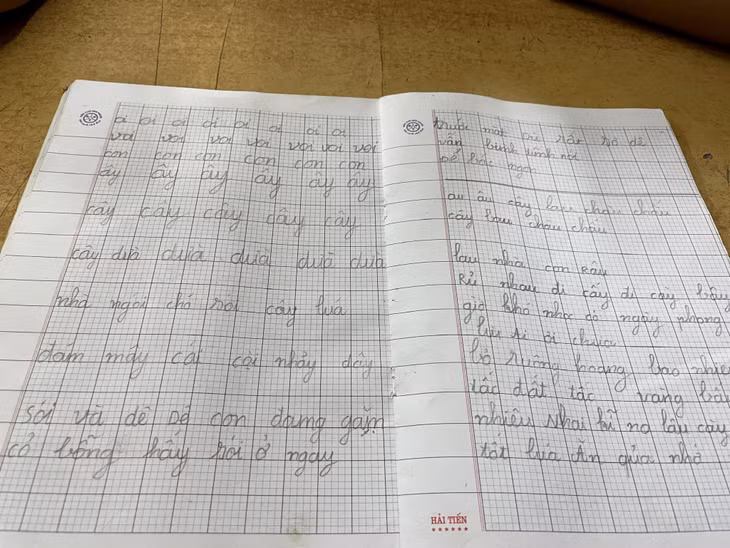 oi oi oi oi oi oi oi oi
voi voi voi voi voi voi voi
con con con con con con
ây ây ây ây ây ây
cây cây cây cây cây
cây dừa dừa dừa dừa dừa
nhà ngói chó sói cây lúa
đám mây cái còi nhảy dây
sói và dê Dê con đang gặm
cỏ bỗng thấy sói ở ngay
trước mặt
vẫn bình tĩnh nói
au âu cây lau châu chấu
cây lau châu chấu
lau nhà con sâu
Rủ nhau đi cấy đi cày bây
giờ khó nhọc có ngày phong
lưu ai ơi chua
bỏ ruộng hoang bao nhiêu
tấc đất tấc vàng bấy
nhiêu
tốt lúa Ăn quả nhớ
HẢI TIẾN